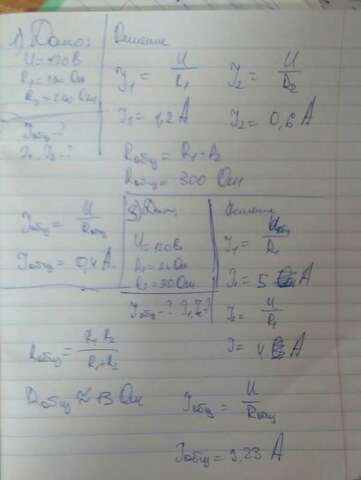 1) Дано:
U = 120 В
R₁ = 100 Ом
R₂ = 200 Ом
Iобщ - ?
I₁, I₂ - ?
Решение
I₁ = U/R₁ I₂ = U/R₂
I₁ = 1,2 А I₂ = 0,6 А
Rобщ = R₁ + R₂
Rобщ = 300 Ом
Iобщ = U/Rобщ
Iобщ = 0,4 А
Дано
R₂ = 30 Ом
Iобщ - ? I₁, I₂ - ?
Решение
I₁ = Uобщ/R₁
I₁ = 5 А
I₂ = U/R₁
I = 4 А
Rобщ = R₁ R₂/R₁+R₂
Rобщ ≈ 13 Ом
Iобщ = U/Rобщ
Iобщ = 9,23 А